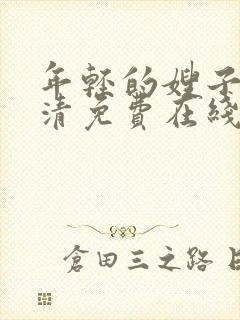 年轻的嫂子
清免費在綫
倉田三之路